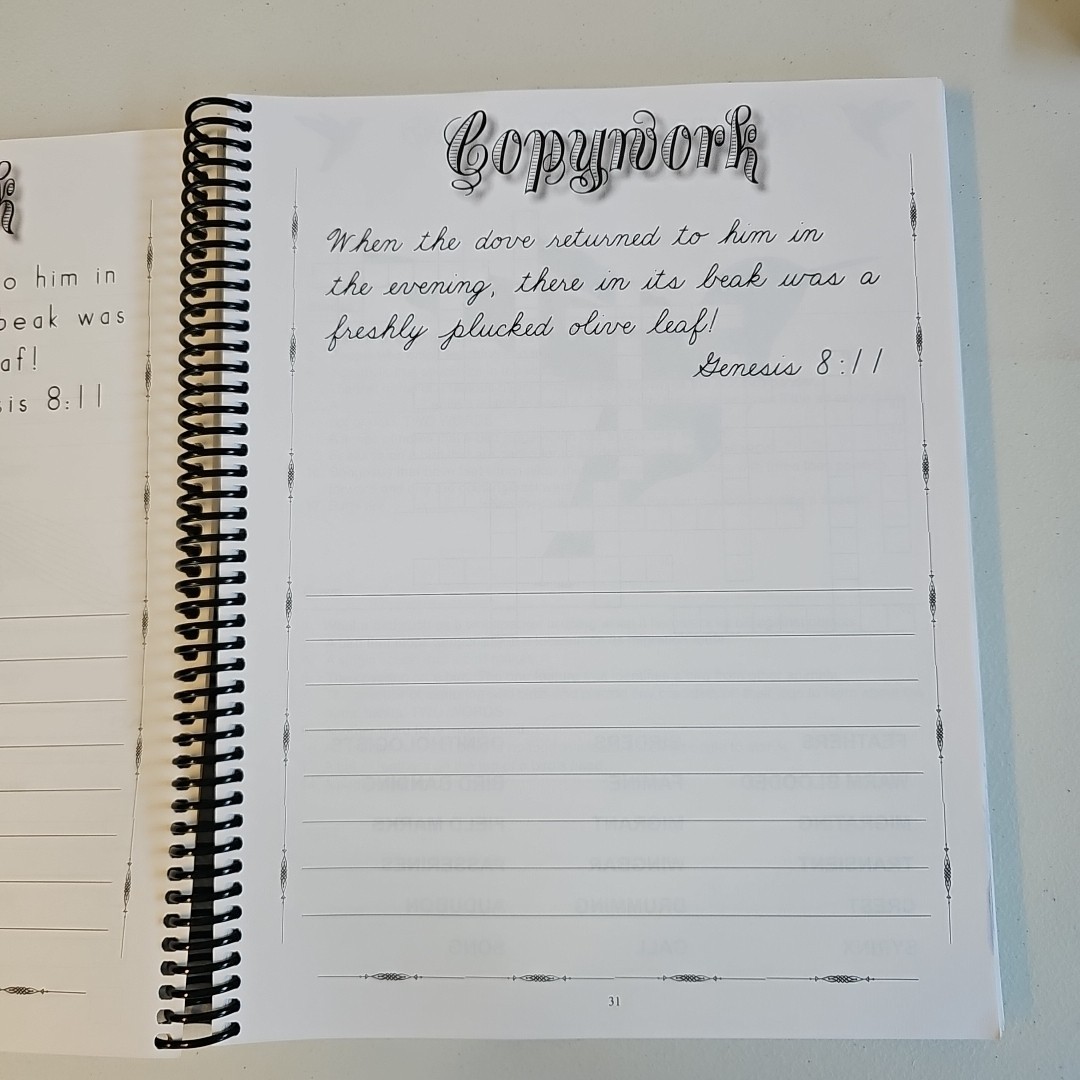 o him in
beak was
af!
is 8:11
Copywork
When the dove returned to him in
the evening, there in its beak was a
freshly plucked olive leaf!
Genesis 8:11
31